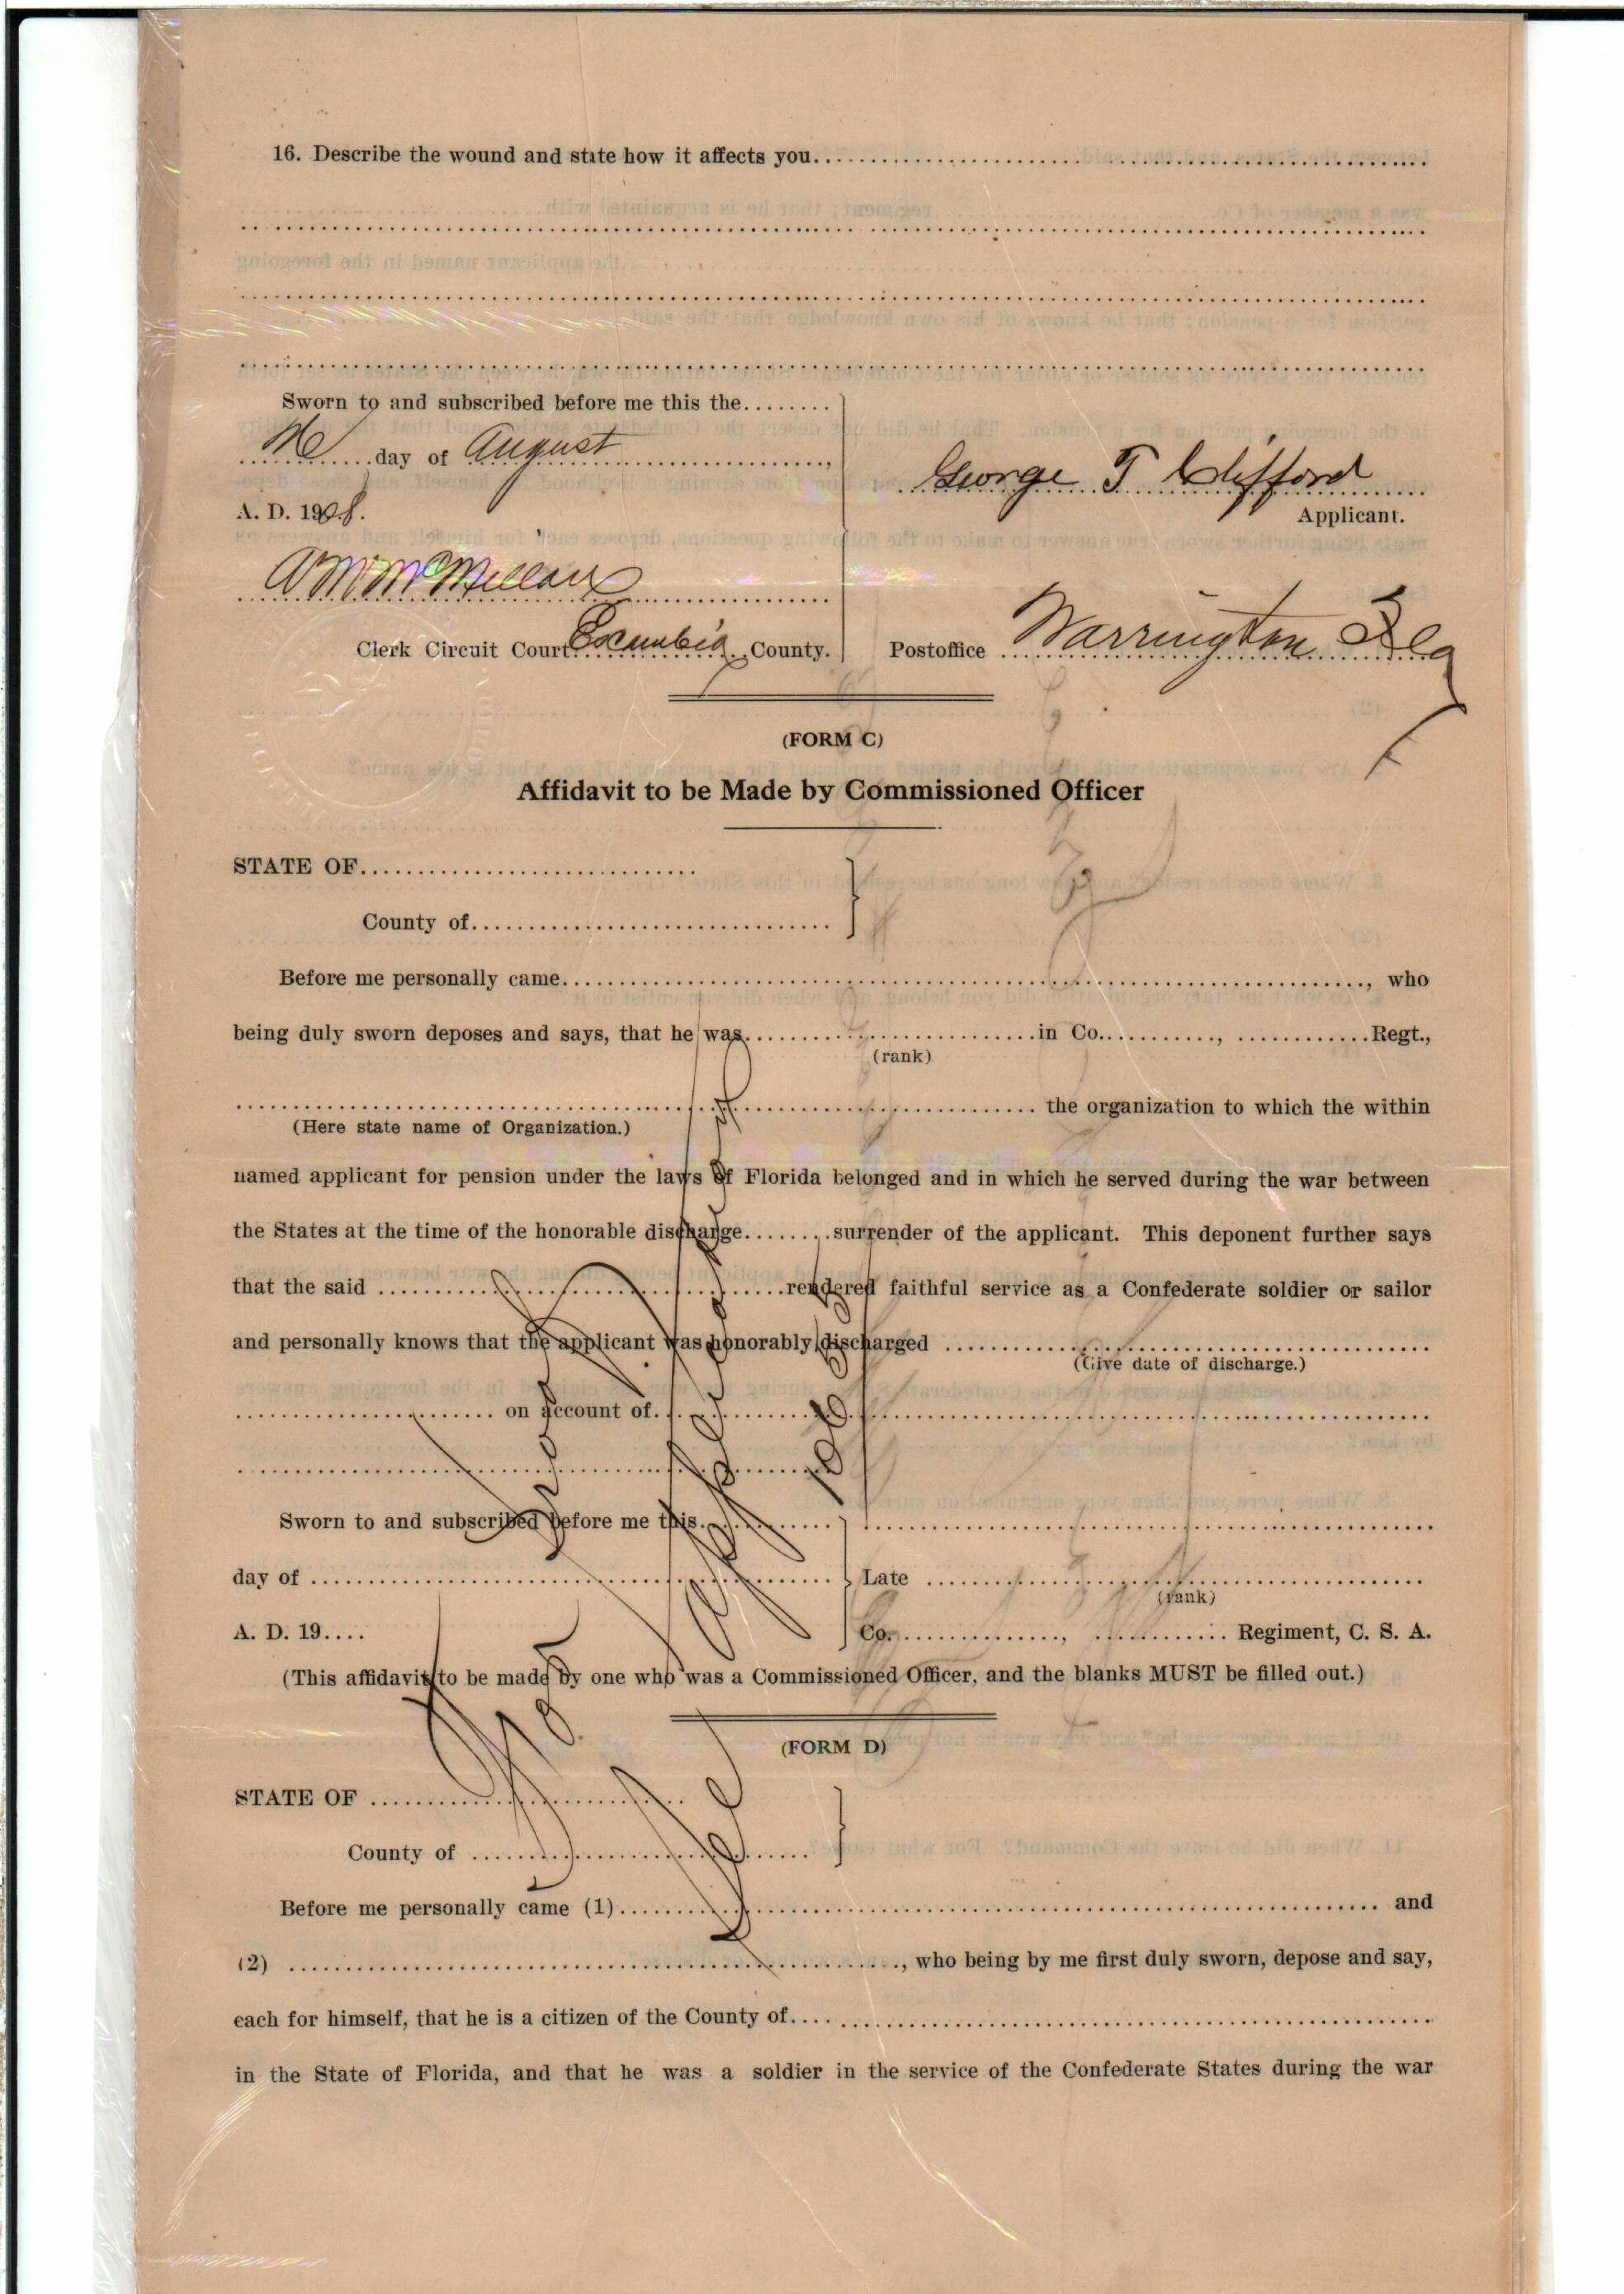 16. Describe the wound and state how it affects you
Sworn to and subscribed before me this the
day of August
A. D. 1908.
George T Clifford
Applicant.
A M McMillan
Clerk Circuit Court Escambia County.
Postoffice Warrington Fla
(FORM C)
Affidavit to be Made by Commissioned Officer
STATE OF
County of
Before me personally came, who
being duly sworn deposes and says, that he was in Co., Regt.,
(rank)
the organization to which the within
(Here state name of Organization.)
named applicant for pension under the laws of Florida belonged and in which he served during the war between
the States at the time of the honorable discharge surrender of the applicant. This deponent further says
that the said rendered faithful service as a Confederate soldier or sailor
and personally knows that the applicant was honorably discharged
(Give date of discharge.)
on account of
Sworn to and subscribed before me this
day of
Late
(rank)
A. D. 19
Co., Regiment, C. S. A.
(This affidavit to be made by one who was a Commissioned Officer, and the blanks MUST be filled out.)
(FORM D)
STATE OF
County of
Before me personally came (1) and
(2) , who being by me first duly sworn, depose and say,
each for himself, that he is a citizen of the County of
in the State of Florida, and that he was a soldier in the service of the Confederate States during the war